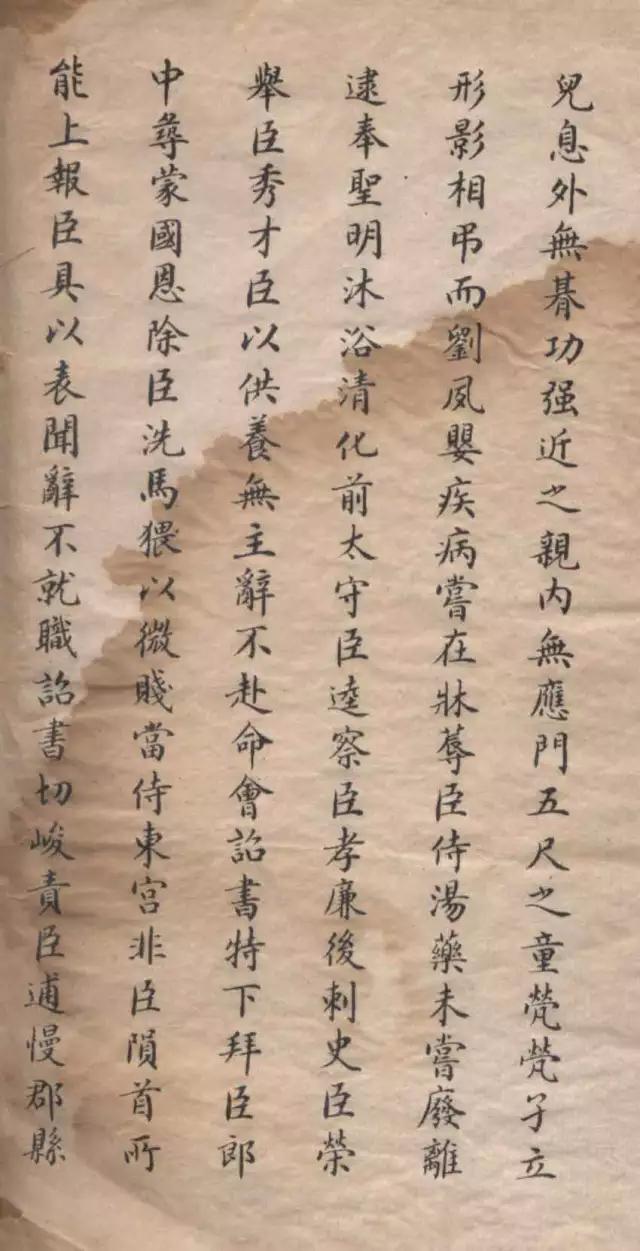 兒息外無朞功强近之親内無應門五尺之童煢煢孑立
形影相弔而劉夙嬰疾病嘗在牀蓐臣侍湯藥未嘗廢離
逮奉聖明沐浴清化前太守臣逵察臣孝廉後刺史臣榮
舉臣秀才臣以供養無主辭不赴命會詔書特下拜臣郎
中尋蒙國恩除臣洗馬猥以微賤當侍東宫非臣隕首所
能上報臣具以表聞辭不就職詔書切峻責臣逋慢郡縣